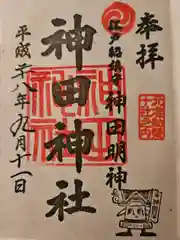 奉拝
江戸総鎮守
神田明神
神田神社
平成二十八年九月十一日